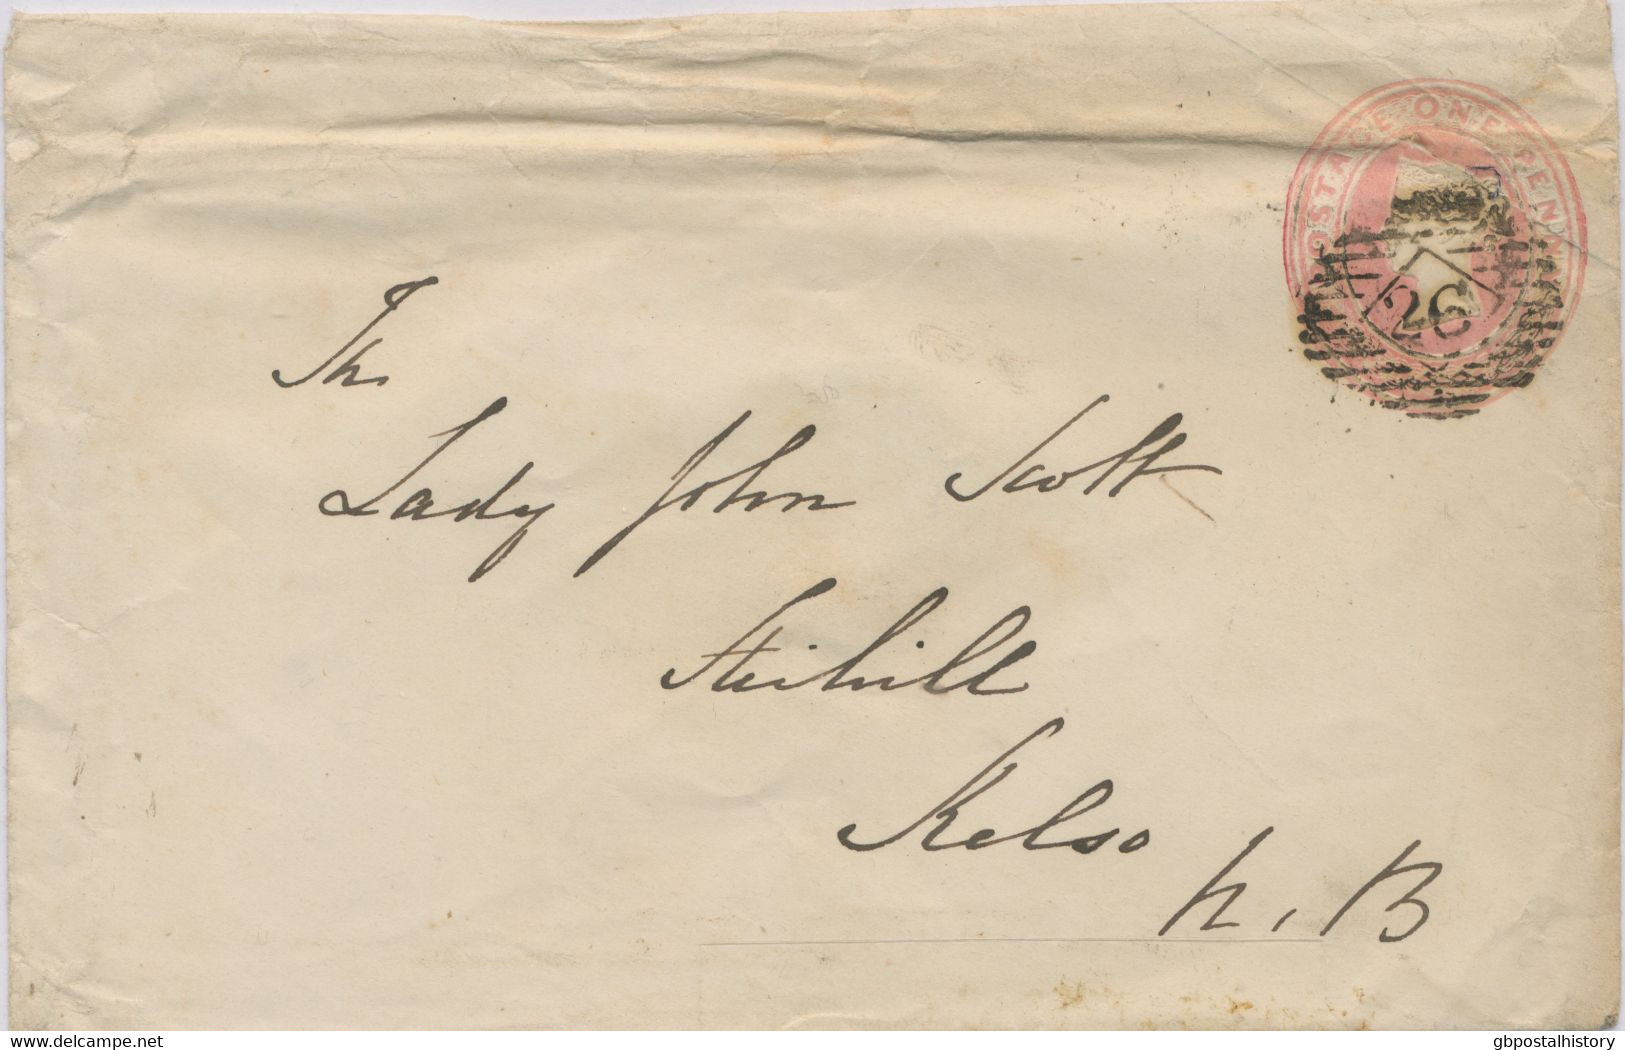 POSTAGE ONE PENNY
26
The
Lady John Scott
Stichill
Kelso
N. B
www.delcampe.net
gbpostalhistory